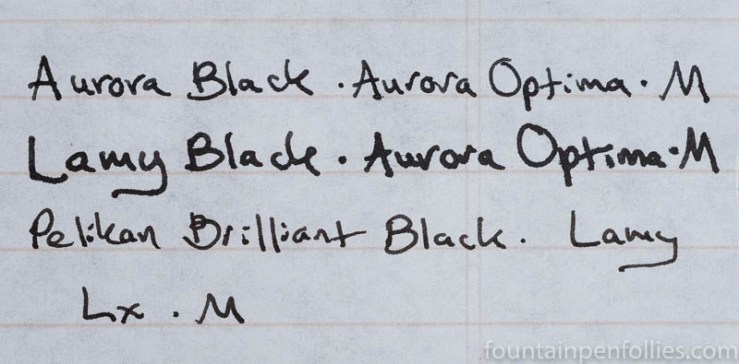 Aurora Black · Aurora Optima · M
Lamy Black · Aurora Optima · M
Pelikan Brilliant Black. Lamy
Lx . M
fountainpenfollies.com